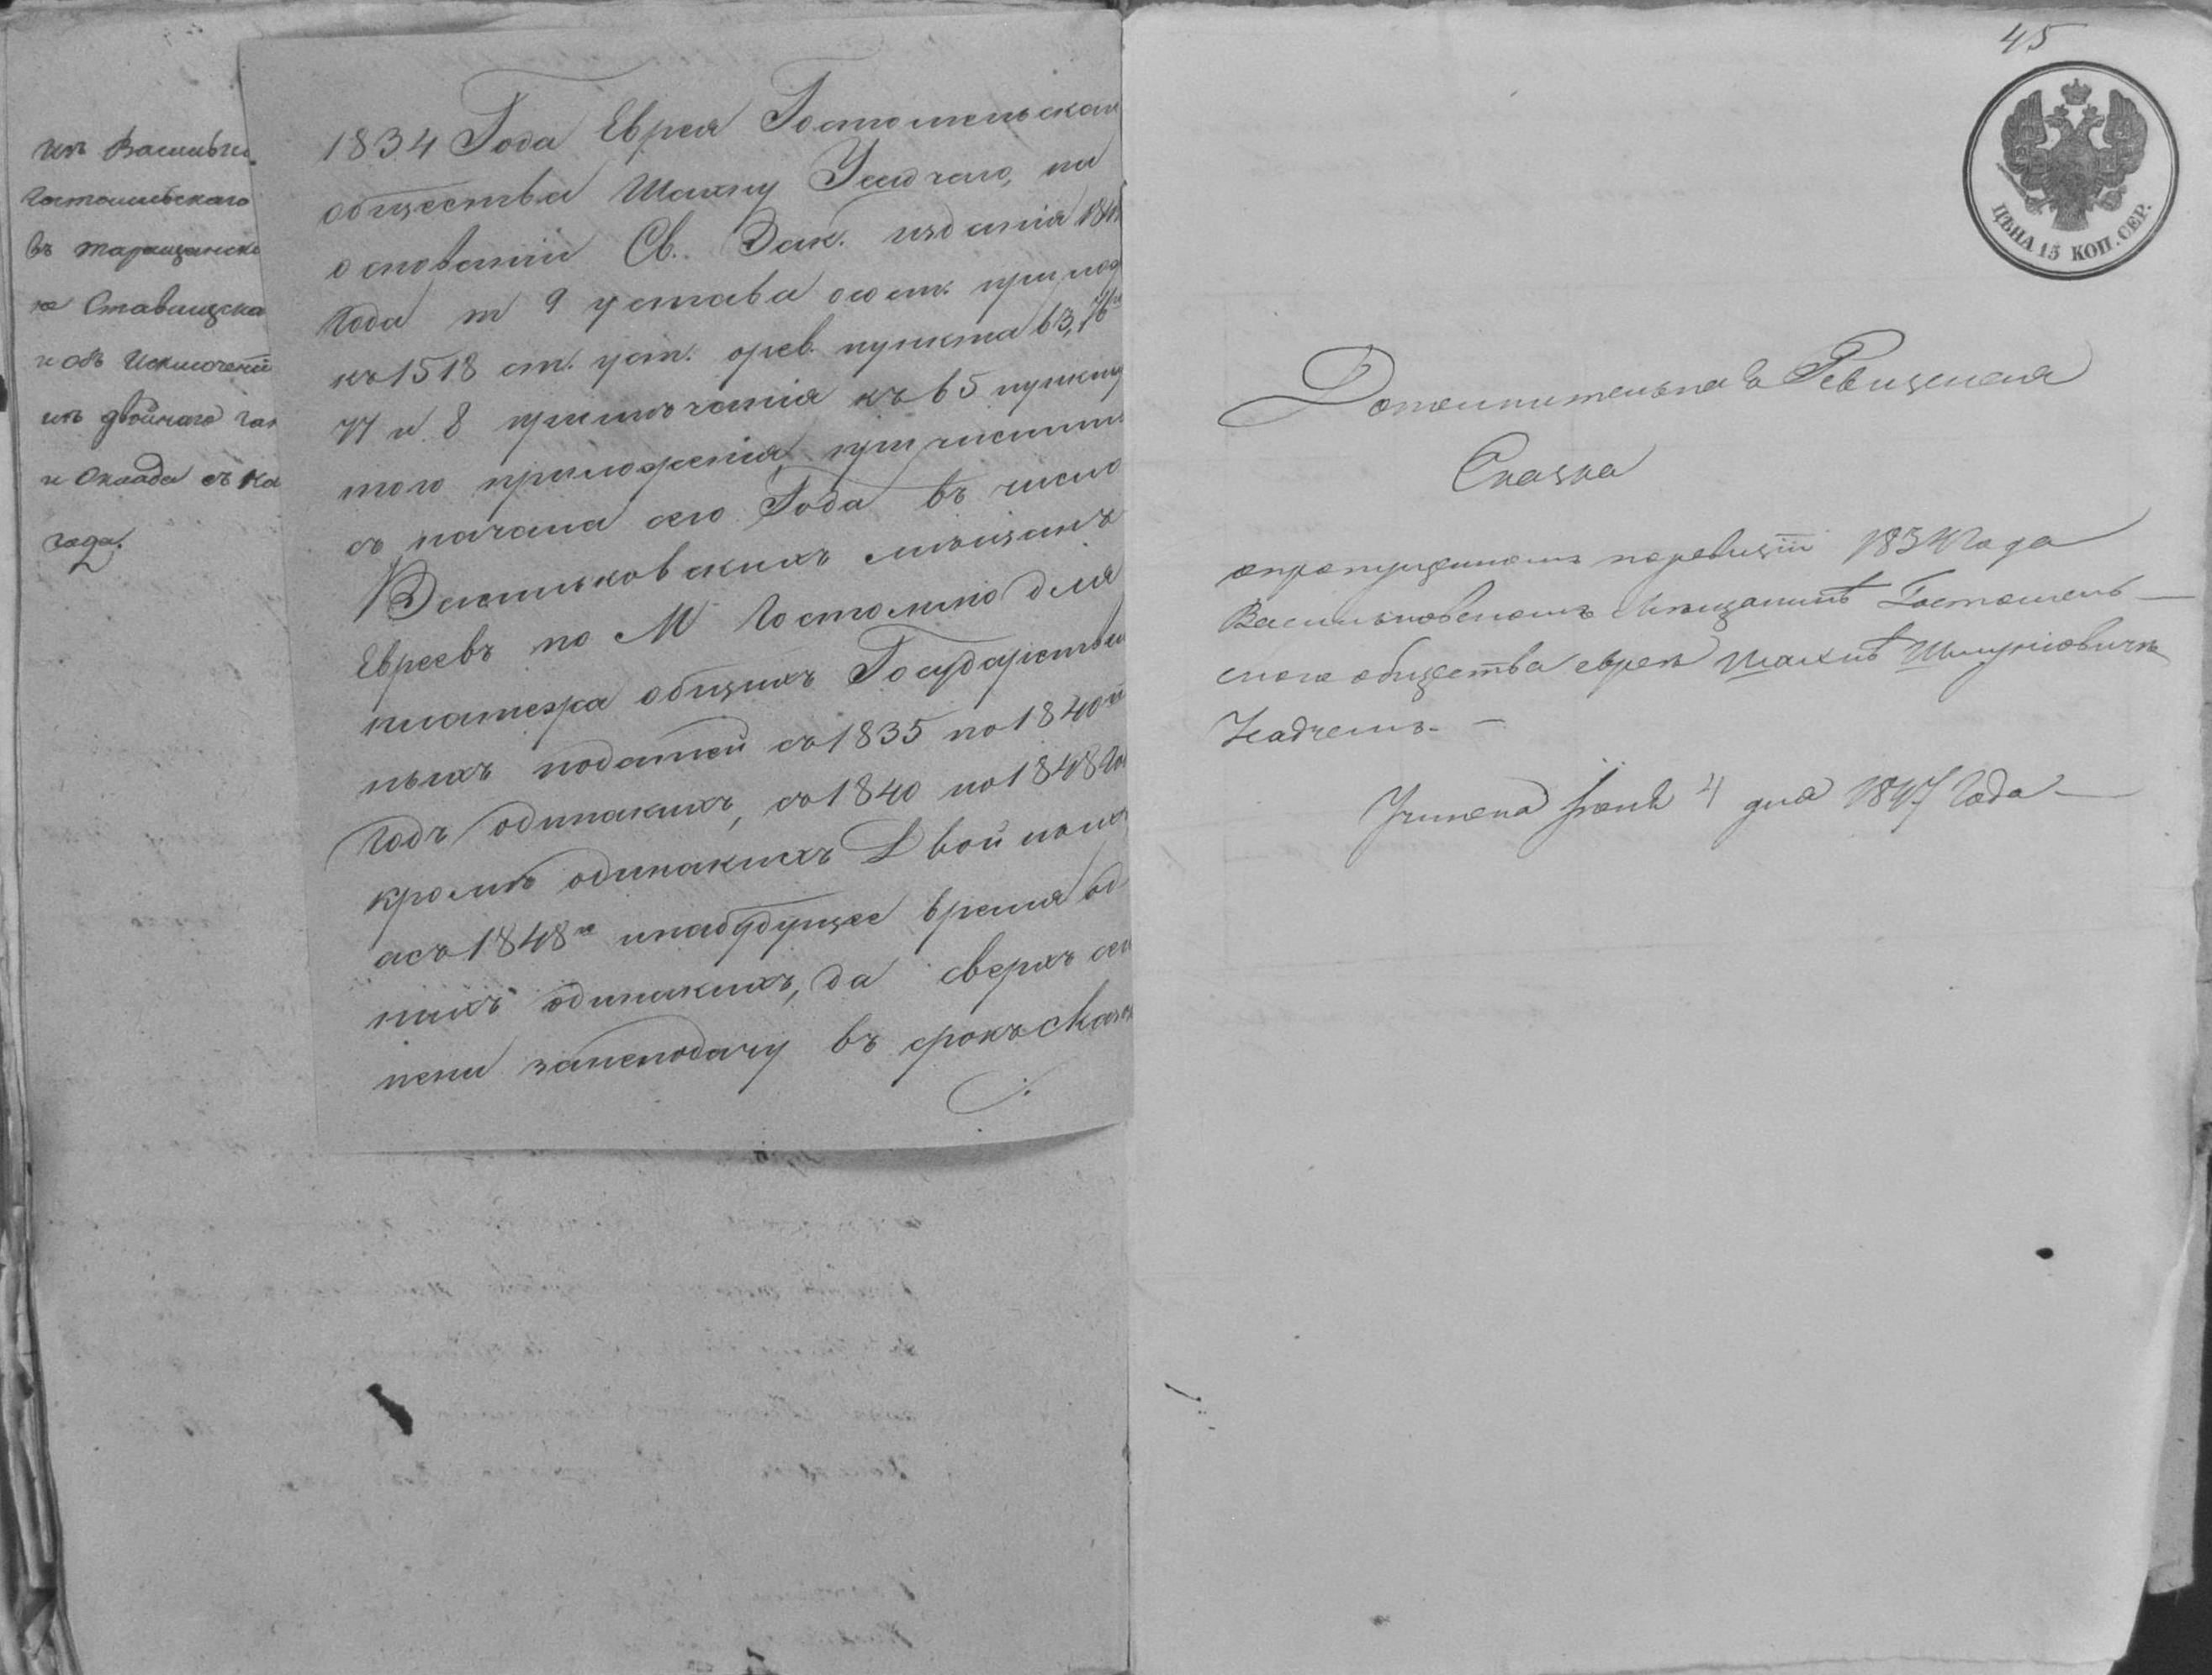 изъ Василь
Гостомельскаго
въ Таращанск
ке Ставищска
и объ Исключеніи
изъ двойнаго
и Оклада съ
года.
1834 Года Еврея Гостомельскаи
общества Шахну Усадчаго, на
основаніи Св. Зак. изданія 184
Года т 9 устава о сост. прилож
къ 1518 ст. уст. о рев. пункта 63,
77 и 8 примѣчанія къ 65 пункту
того приложенія, причислит
съ начала сего Года въ число
Васильковскихъ мѣщанъ
Евреевъ по М Гостомлю для
платежа общихъ Государствен
ныхъ податей съ 1835 по 1840й
Годъ одинакихъ, съ 1840 по 1848 Го
кромѣ одинакихъ Двойныхъ
а съ 1848го и на будущее время од
нихъ одинакихъ, да сверхъ сег
пени за неподачу въ срокъ Сказк
45
ЦѢНА 15 КОП. СЕР.
Дополнительная Ревизская
Сказка
о пропущенномъ по ревизіи 1834 Года
Васильковскомъ Мѣщанинѣ Гостомель
скаго общества евреѣ Шахнѣ Шмуліовичѣ
Усадчемъ. —
Учинена Іюня 4 дня 1847 Года —